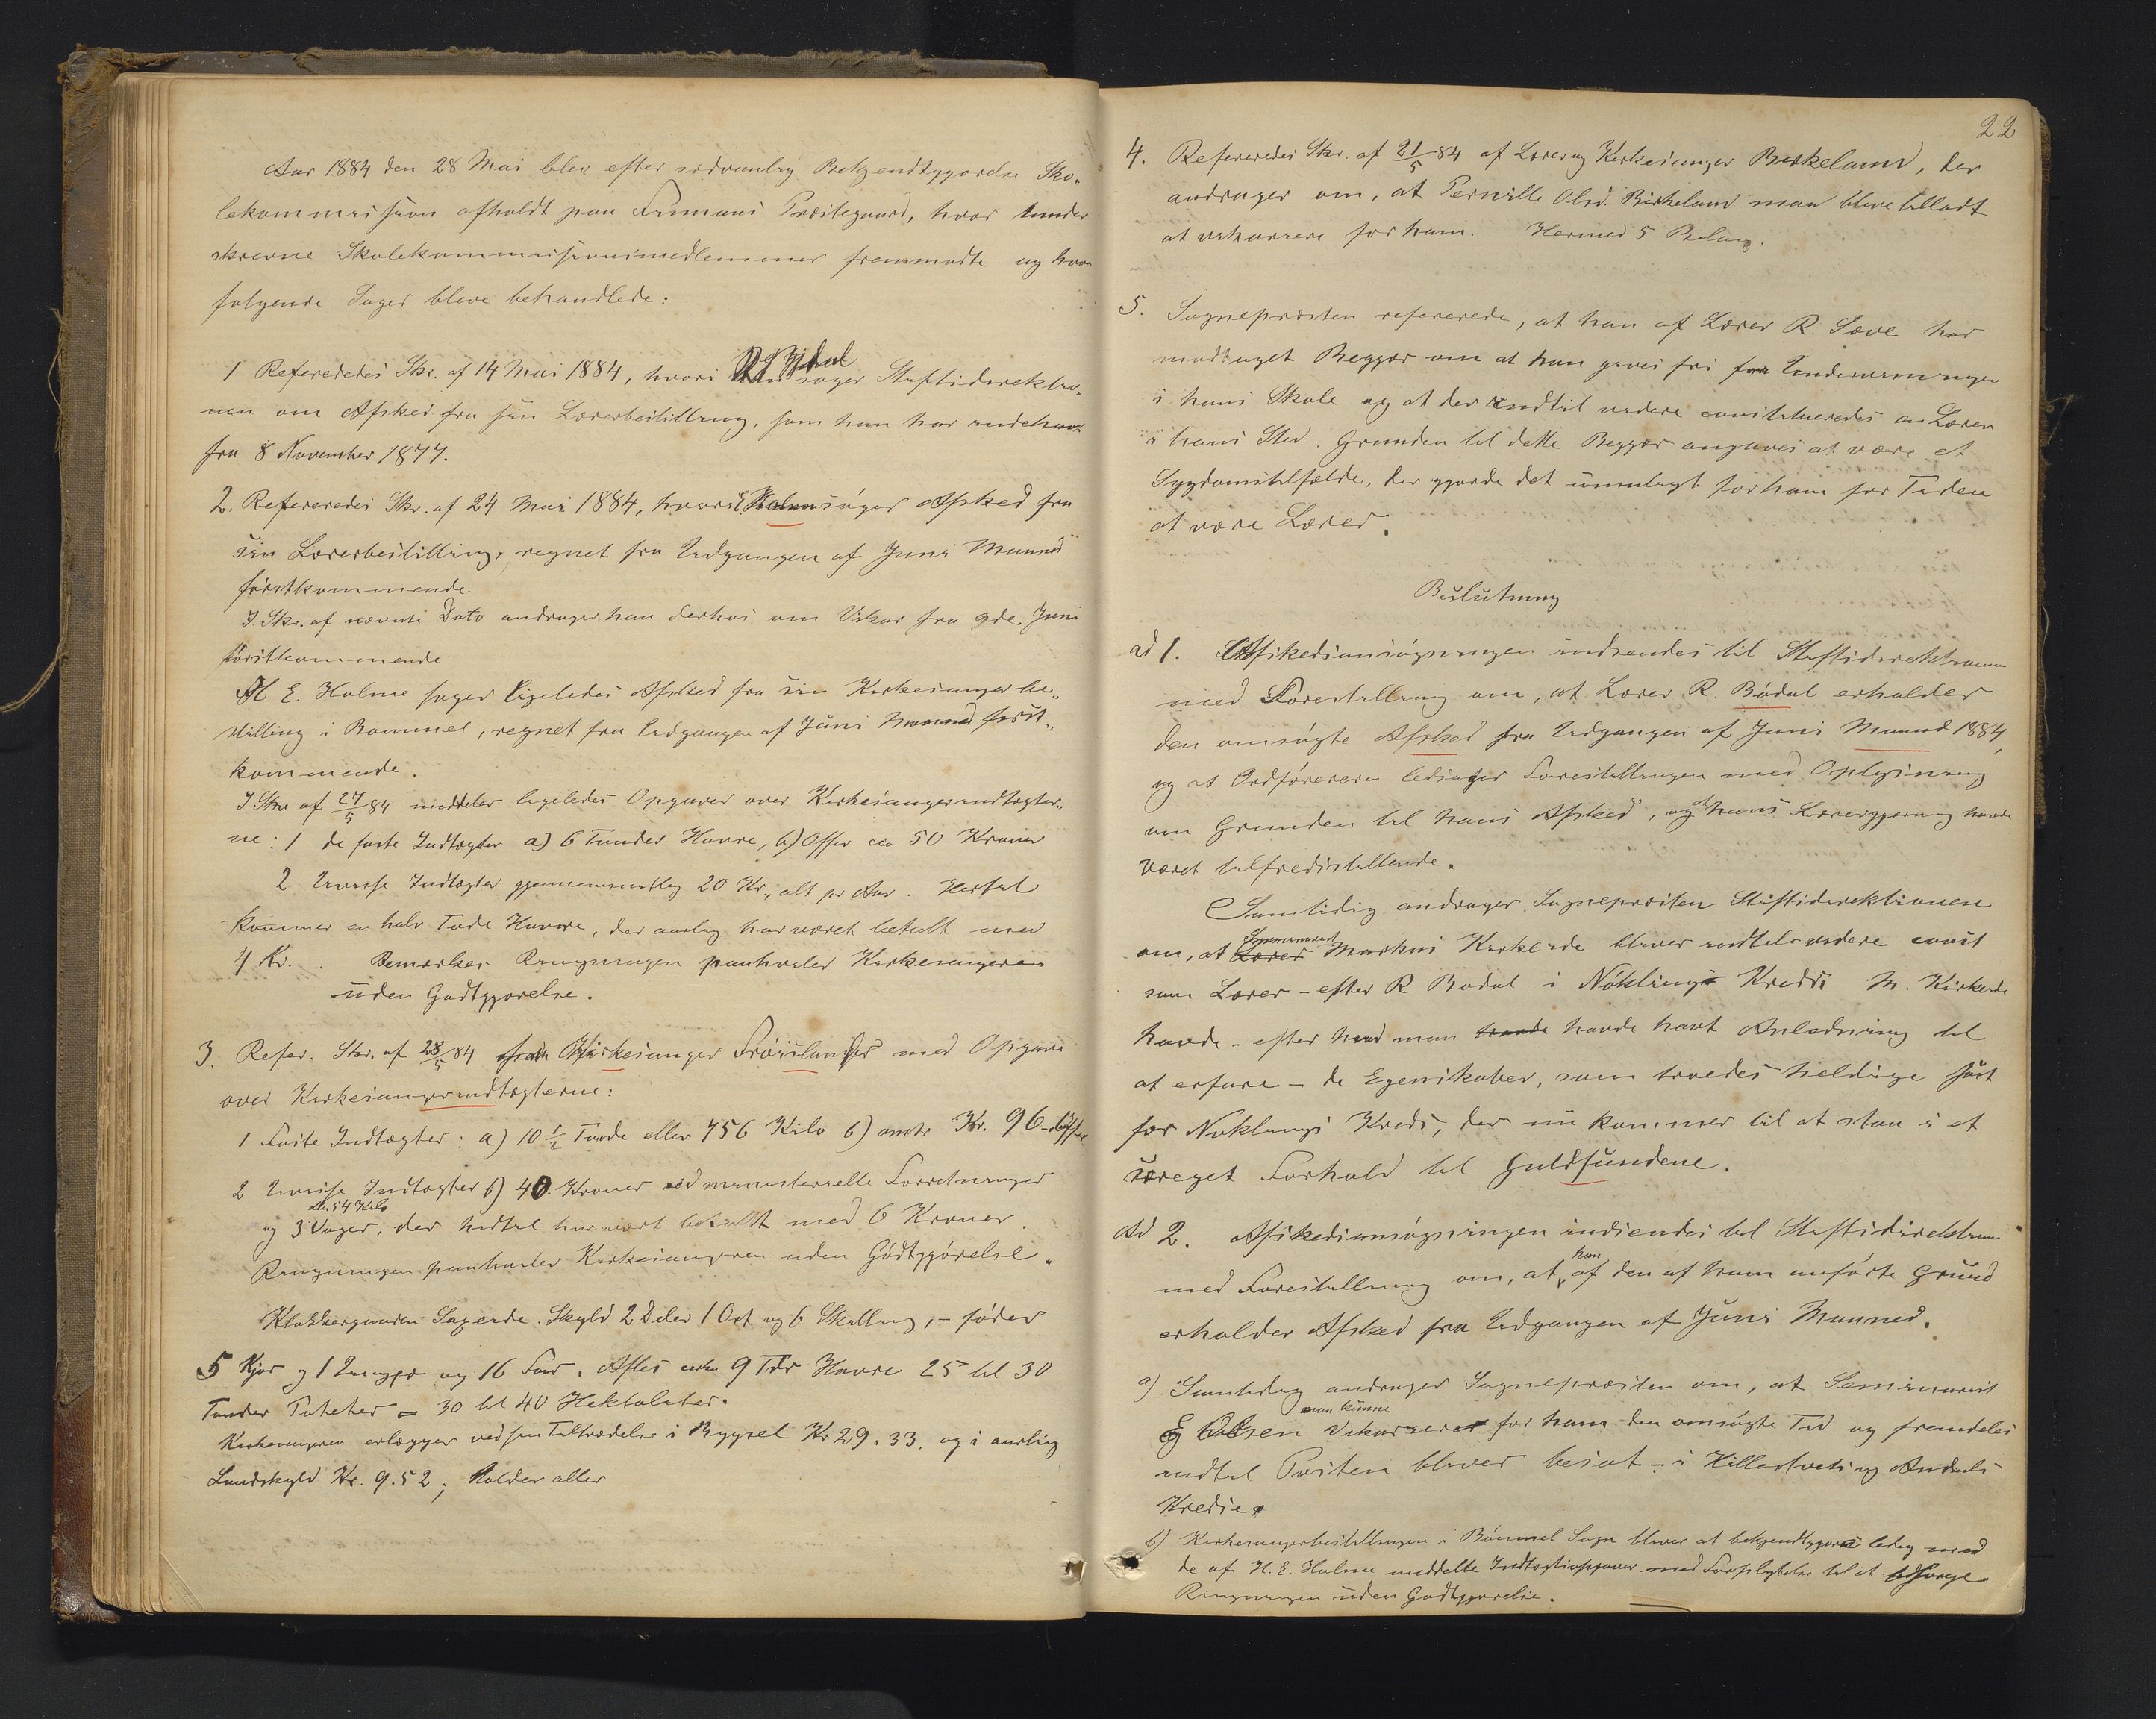 Aar 1884 den 28 Mai blev efter sedvanlig Bekjendtgjørelse Sko-
lekommission afholdt paa Finnaas Præstegaard, hvor under
skrevne Skolekommissionsmedlemmer fremmødte og hvor
følgende Sager bleve behandlede:
1 Refereredes Skr. af 14 Mai 1884, hvori R Bødal søger Stiftsdirektio-
nen om Afsked fra sin Lærerbestilling, som han har indehavt
fra 8 November 1877.
2. Refereredes Skr. af 24 Mai 1884, hvori E. Holme søger Afsked fra
sin Lærerbestilling, regnet fra Udgangen af Juni Maaned
førstkommende.
I Skr. af nævnte Dato andrager han derhos om Vikar fra 9de Juni
førstkommende
H E. Holme søger ligeledes Afsked fra sin Kirkesangerbe-
stilling i Bømmel, regnet fra Udgangen af Juni Maaned først-
kommende.
I Skr af 27/5 84 meddeler ligeledes Opgaver over Kirkesangerindtægter-
ne: 1 de faste Indtægter a) 6 Tønder Havre, b) Offer ca 50 Kroner
2 Uvisse Indtægter gjennemsnitlig 20 Kr., alt pr Aar. Hertil
kommer en halv Tøde Havre, der aarlig har været betalt med
4 Kr. . Bemærkes Ringningen paahviler Kirkesangeren
uden Godtgjørelse.
3. Refer. Skr. af 28/5 84 fra Kirkesanger Frøislands med Opgave
over Kirkesangerindtægterne:
1 Faste Indtægter: a) 10 1/2 Tønde eller 756 Kilo b) omtr Kr. 96 - Offer
2 Uvisse Indtægter b) 40. Kroner ved ministerielle Forretninger
eller 54 Kilo
og 3 Voger, der hidtil har vært betalt med 6 Kroner.
Ringningen paahviler Kirkesangeren uden Godtgjørelse.
Klokkergaarden Sagerde. Skyld 2 Daler 1 Ort og 6 Skilling, - føder
5 Kjør og 1 Ungfæ og 16 Faar. Afles cirka 9 Tdr Havre 25 til 30
Tønder Poteter = 30 til 40 Hektoliter.
Kirkesangeren erlægger ved sin Tiltrædelse i Bygsel Kr 29.33. og i aarlig
Landskyld Kr. 9.52; Holder aller
22
4. Refereredes Skr. af 21/5 84 af Lærer og Kirkesanger Birkeland, der
andrager om, at Pernille Olsd. Birkeland maa blive tilladt
at vikariere for ham. Hermed 5 Bilag.
5. Sognepræsten refererede, at han af Lærer R. Sæve har
modtaget Begjær om at han gives fri fra Undervisningen
i hans Skole og at der indtil videre constitueredes en Lærer
i hans Sted. Grunden til dette Begjær angaves at være et
Sygdomstilfælde, der gjorde det umuligt for ham for Tiden
at være Lærer.
Beslutning
ad 1. Afskedsansøgningen indsendes til Stiftsdirektionen
med Forestilling om, at Lærer R. Bødal erholder
den ansøgte Afsked fra Udgangen af Juni Maaned 1884,
og at Ordføreren ledsager Forestillingen med Oplysning
om Grunden til hans Afsked, og at hans Lærergjerning havde
været tilfredsstillende.
Samtidig andrager Sognepræsten Stiftsdirektionen
Seminarist
om, at Lærer Markus Kirkeide bliver indtil videre const
som Lærer - efter R Bødal i Nøklings Kreds M. Kirkeide
havde - efter hvad man havde havde havt Anledning til
at erfare - de Egenskaber, som troedes heldige just
for Nøklings Kreds, der nu kommer til at staa i et
særeget Forhold til Guldfundene.
Ad 2. Afskedsansøgningen indsendes til Stiftsdirektionen
han
med Forestilling om, at af den af ham anførte Grund
erholder Afsked fra Udgangen af Juni Maaned.
a) Samtidig andrager Sognepræsten om, at Seminarist
maa kunne
E Olsen vikariere for ham den ansøgte Tid og fremdeles
indtil Posten bliver besat - i Hillestveits og Andals
Kredse.
b) Kirkesangerbestillingen i Bømmel Sogn bliver at bekjendtgjøre ledig med
de af H. E. Holme meddelte Indtægtsopgaver med Forpligtelse til at besørge
Ringningen uden Godtgjørelse.